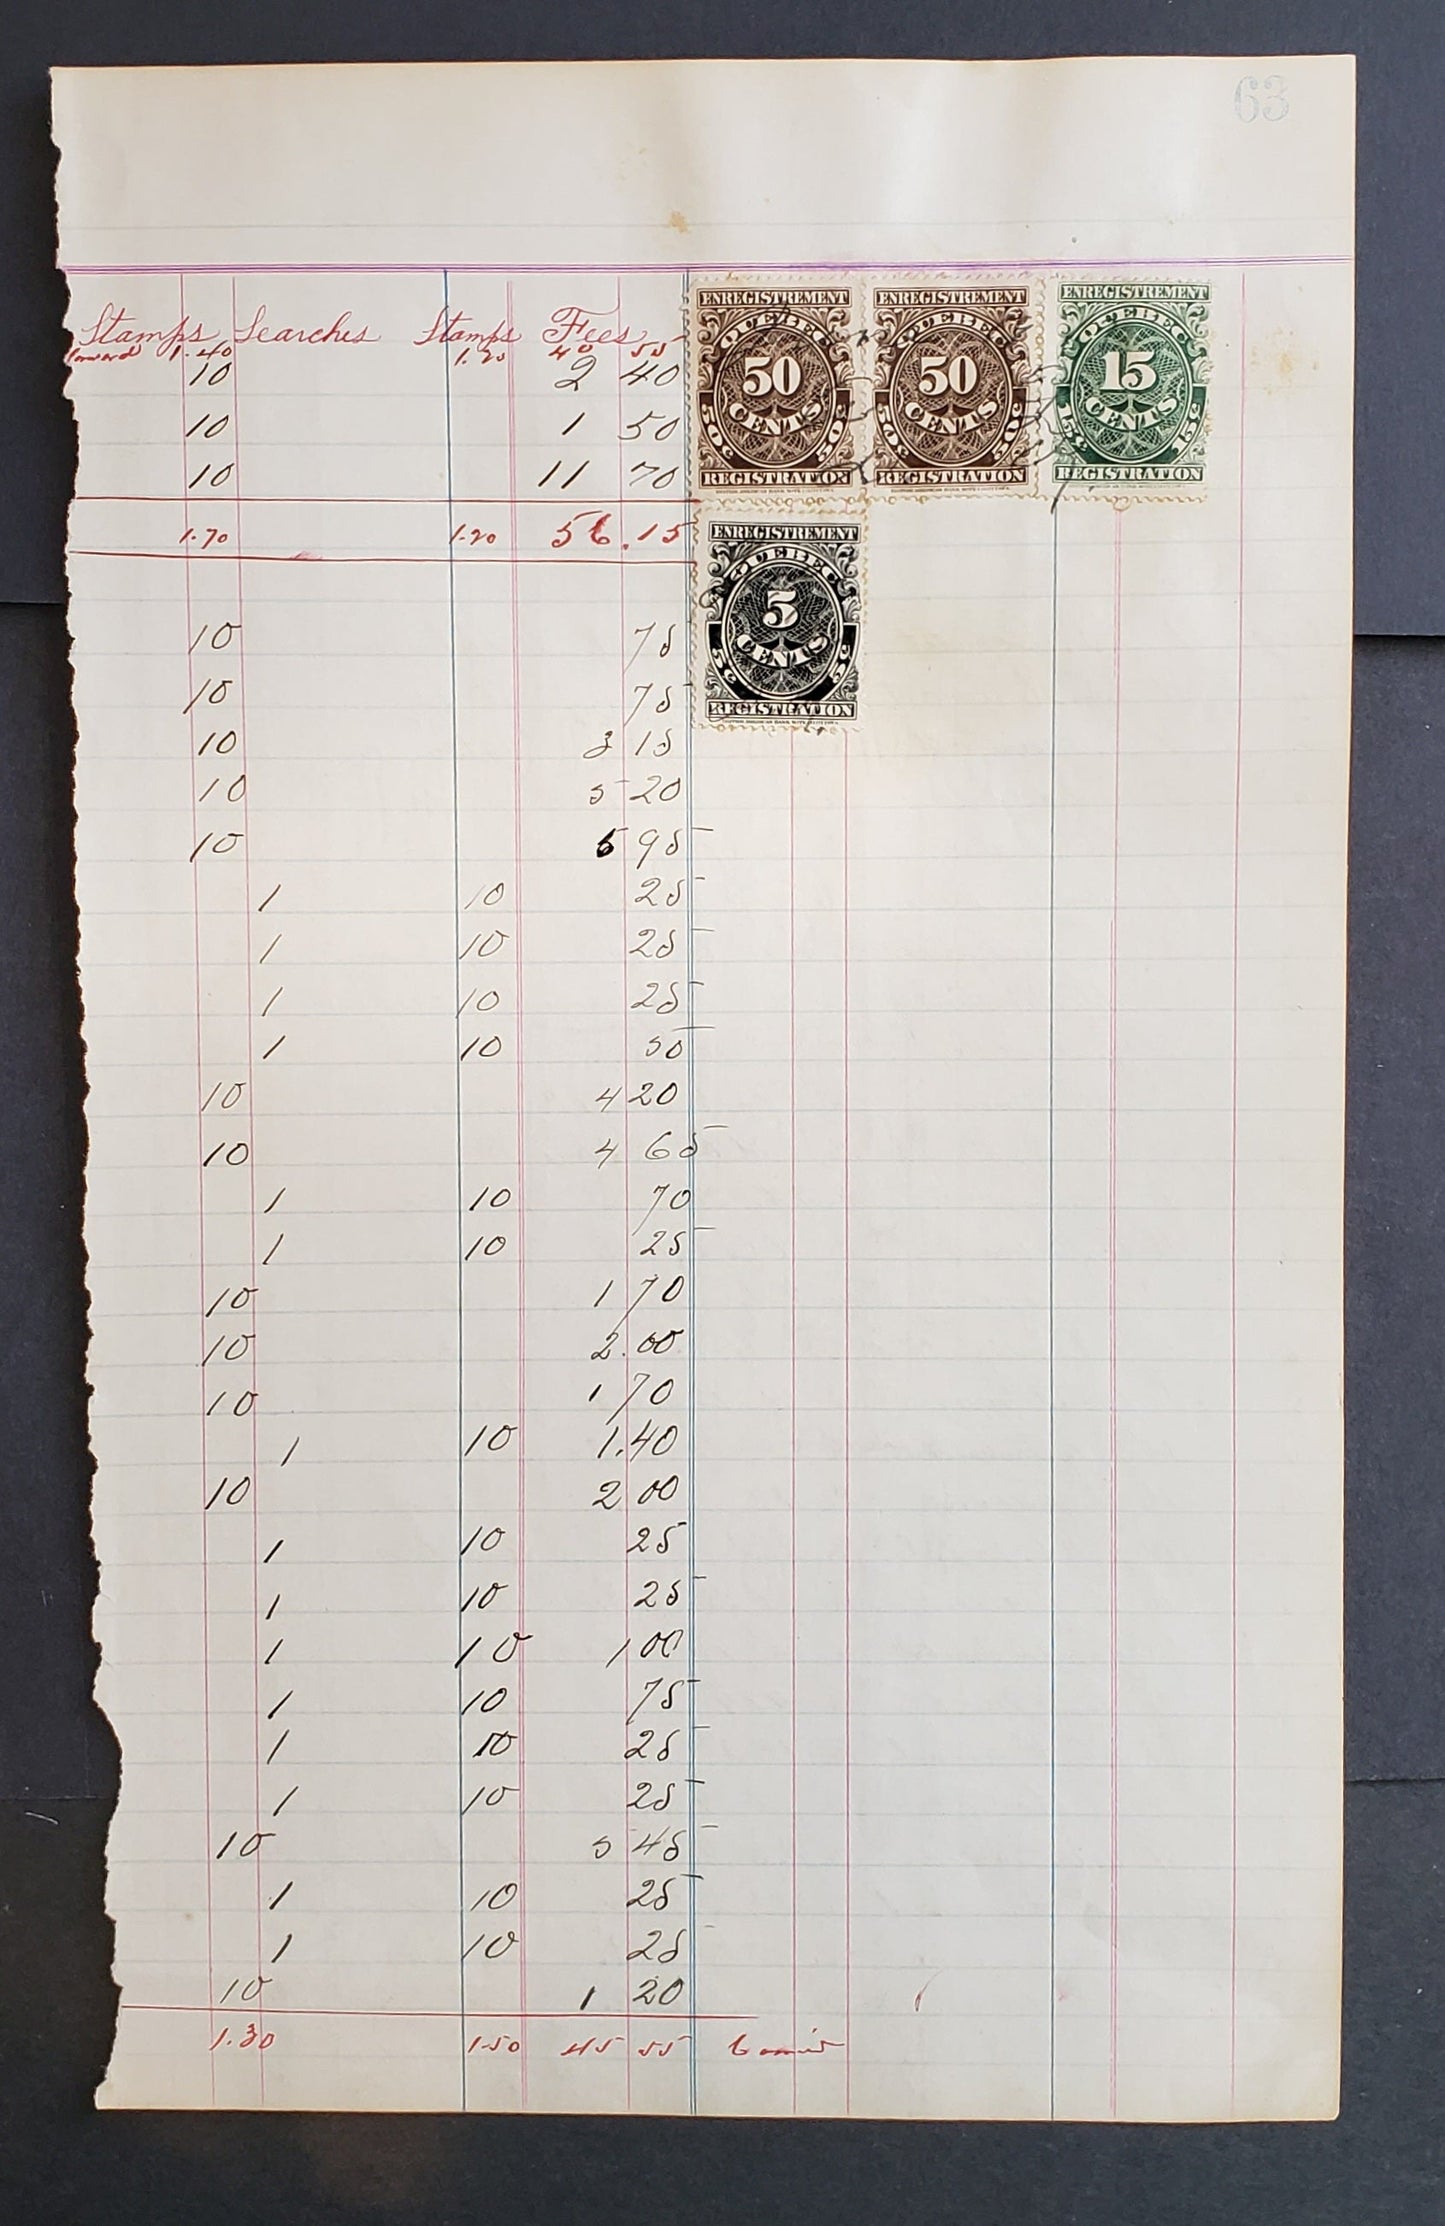 63
Stamps Searches Stamps Fees
forward 1.40 1.20 40 55
10 2 40
10 1 50
10 11 70
1.70 1.20 56.15
10 75
10 75
10 3 15
10 5 20
10 5 95
1 10 25
1 10 25
1 10 25
1 10 50
10 4 20
10 4 65
1 10 70
1 10 25
10 1 70
10 2.00
10 1 70
1 10 1.40
10 2 00
1 10 25
1 10 25
1 10 1 00
1 10 75
1 10 25
1 10 25
10 5 45
1 10 25
1 10 25
10 1 20
1.30 1.50 45 55
ENREGISTREMENT
QUEBEC
50
CENTS
50c 50c
REGISTRATION
ENREGISTREMENT
QUEBEC
50
CENTS
50c 50c
REGISTRATION
ENREGISTREMENT
QUEBEC
15
CENTS
15c 15c
REGISTRATION
ENREGISTREMENT
QUEBEC
5
CENTS
5c 5c
REGISTRATION